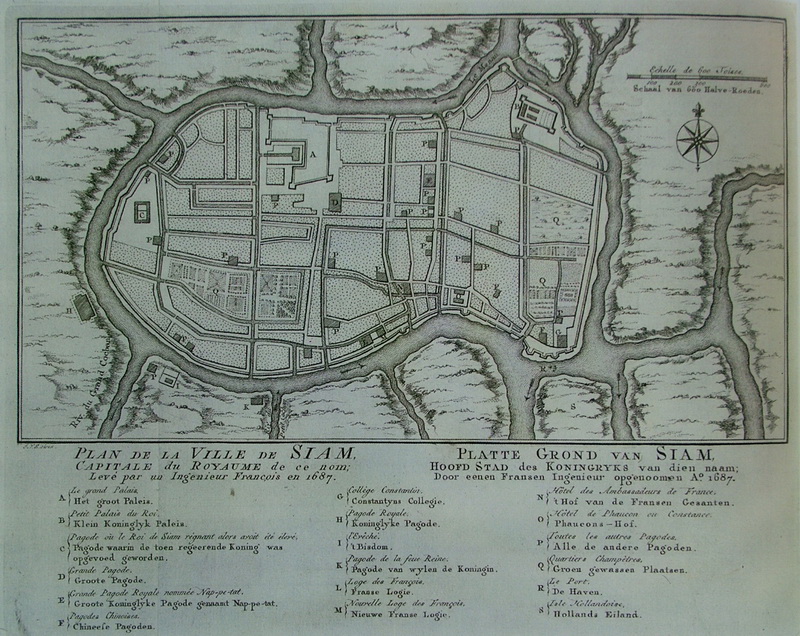 Echelle de 600 Toises
100 200 300 600
Schaal van 600 Halve-Roeden.
A
C
D
P
P
P
P
P
P
P
P
P
P
Q
Q
H
K
R
S
PLAN DE LA VILLE DE SIAM,
CAPITALE du ROYAUME de ce nom;
Levé par un Ingénieur François en 1687.
PLATTE GROND VAN SIAM,
HOOFD STAD des KONINGRYKS van dien naam;
Door eenen Fransen Ingenieur opgenoomen Aº 1687.
A { Le grand Palais.
Het groot Paleis.
B { Petit Palais du Roi.
Klein Koninglyk Paleis.
C { Pagode où le Roi de Siam régnant alors avoit été élevé,
Pagode waarin de toen regeerende Koning was
opgevoed geworden.
D { Grande Pagode.
Groote Pagode.
E { Grande Pagode Royale nommée Nap-pe-tat.
Groote Koninglyke Pagode genaamt Nap-pe-tat.
F { Pagodes Chinoises.
Chineese Pagoden.
G { Collège Constantin.
Constantyns Collegie.
H { Pagode Royale.
Koninglyke Pagode.
I { l'Evêché.
't Bisdom.
K { Pagode de la feue Reine.
Pagode van wylen de Koningin.
L { Loge des François.
Franse Logie.
M { Nouvelle Loge des François.
Nieuwe Franse Logie.
N { Hôtel des Ambassadeurs de France.
't Hof van de Fransen Gesanten.
O { Hôtel de Phaucon ou Constance.
Phaucons-Hof.
P { Toutes les autres Pagodes.
Alle de andere Pagoden.
Q { Quartiers Champêtres.
Groen gewassen Plaatsen.
R { Le Port.
De Haven.
S { Isle Hollandoise.
Hollands Eiland.